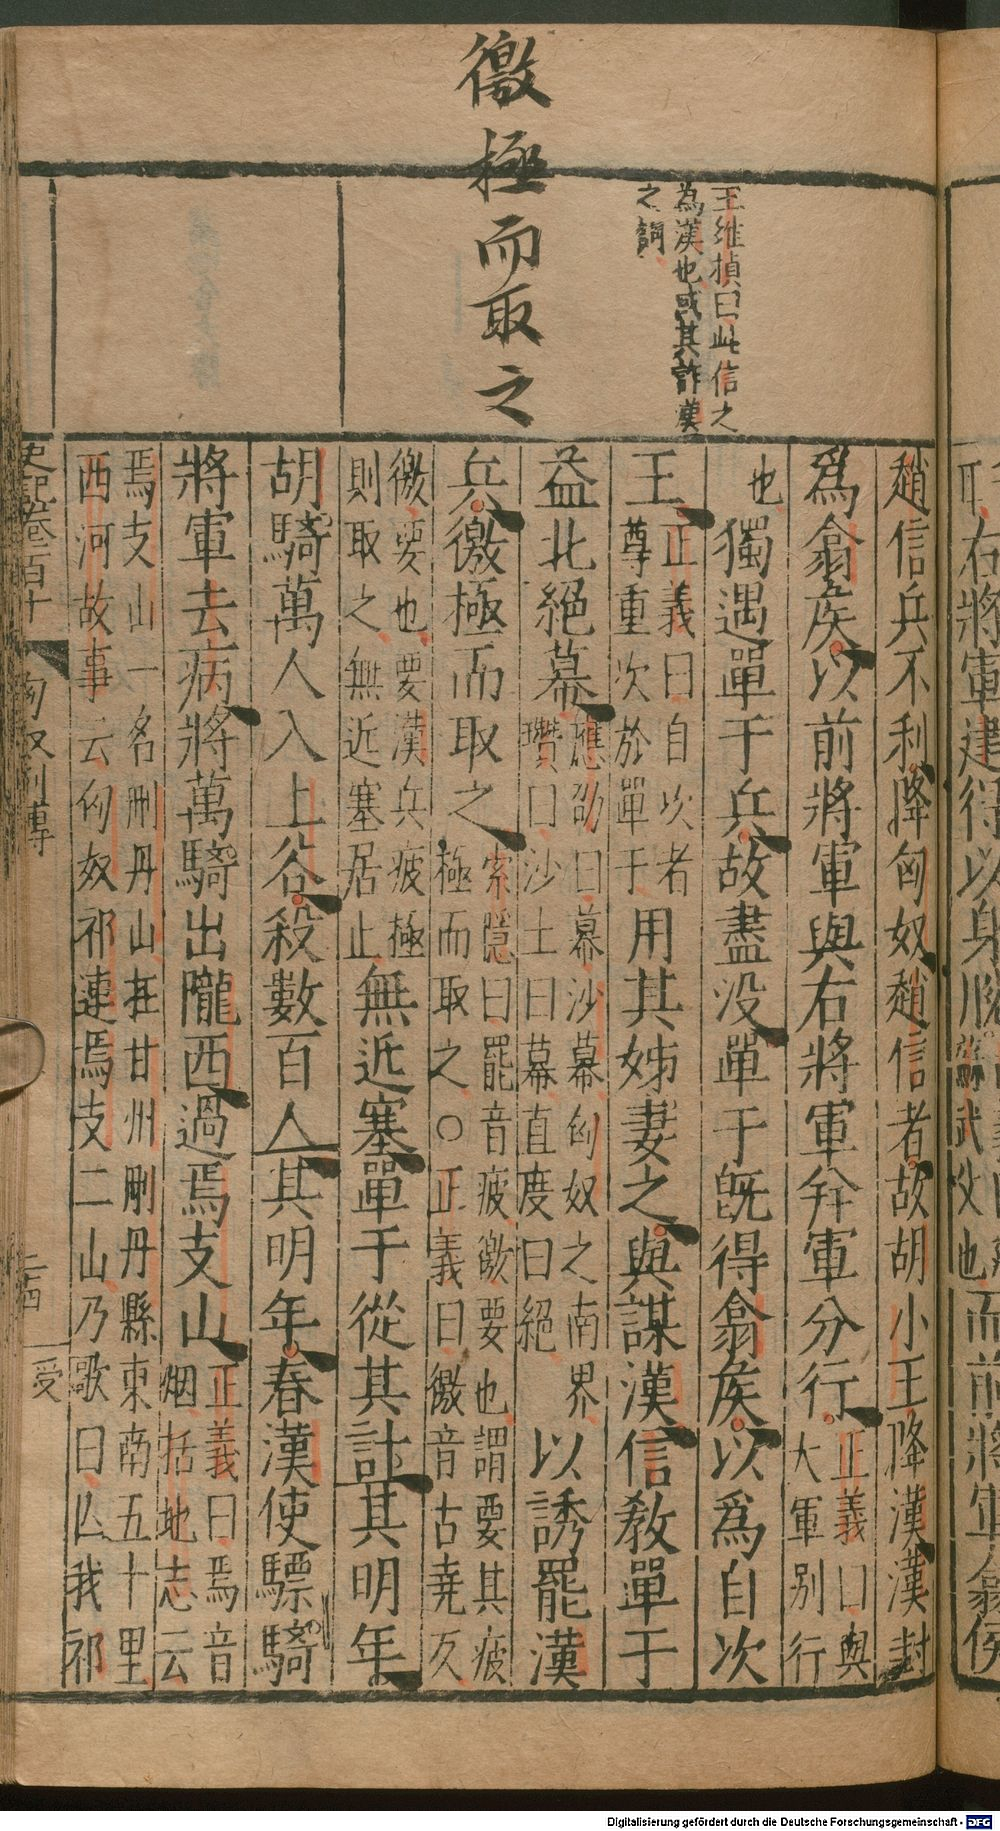 徼極而取之
王維楨曰此信之
為漢也或其詐漢
之詞
趙信兵不利降匈奴趙信者故胡小王降漢漢封
為翕矦以前將軍與右將軍并軍分行正義曰與
大軍別行
也獨遇單于兵故盡没單于旣得翕矦以爲自次
王正義曰自次者
尊重次於單于用其姊妻之與謀漢信敎單于
益北絕幕應劭曰幕沙幕匈奴之南界
瓚曰沙土曰幕直度曰絕以誘罷漢
兵徼極而取之索隱曰罷音疲徼要也謂要其疲
極而取之○正義曰徼音古堯反
徼要也要漢兵疲極
則取之無近塞居止無近塞單于從其計其明年
胡騎萬人入上谷殺數百人其明年春漢使驃騎
將軍去病將萬騎出隴西過焉支山正義曰焉音
烟括地志云
焉支山一名刪丹山在甘州刪丹縣東南五十里
西河故事云匈奴祁連焉支二山乃歌曰亾我祁
史記卷一百十 匈奴列傳 二四 受
取右將軍建得以身脫
蘇武父也而前將軍翕侯
Digitalisierung gefördert durch die Deutsche Forschungsgemeinschaft - DFG